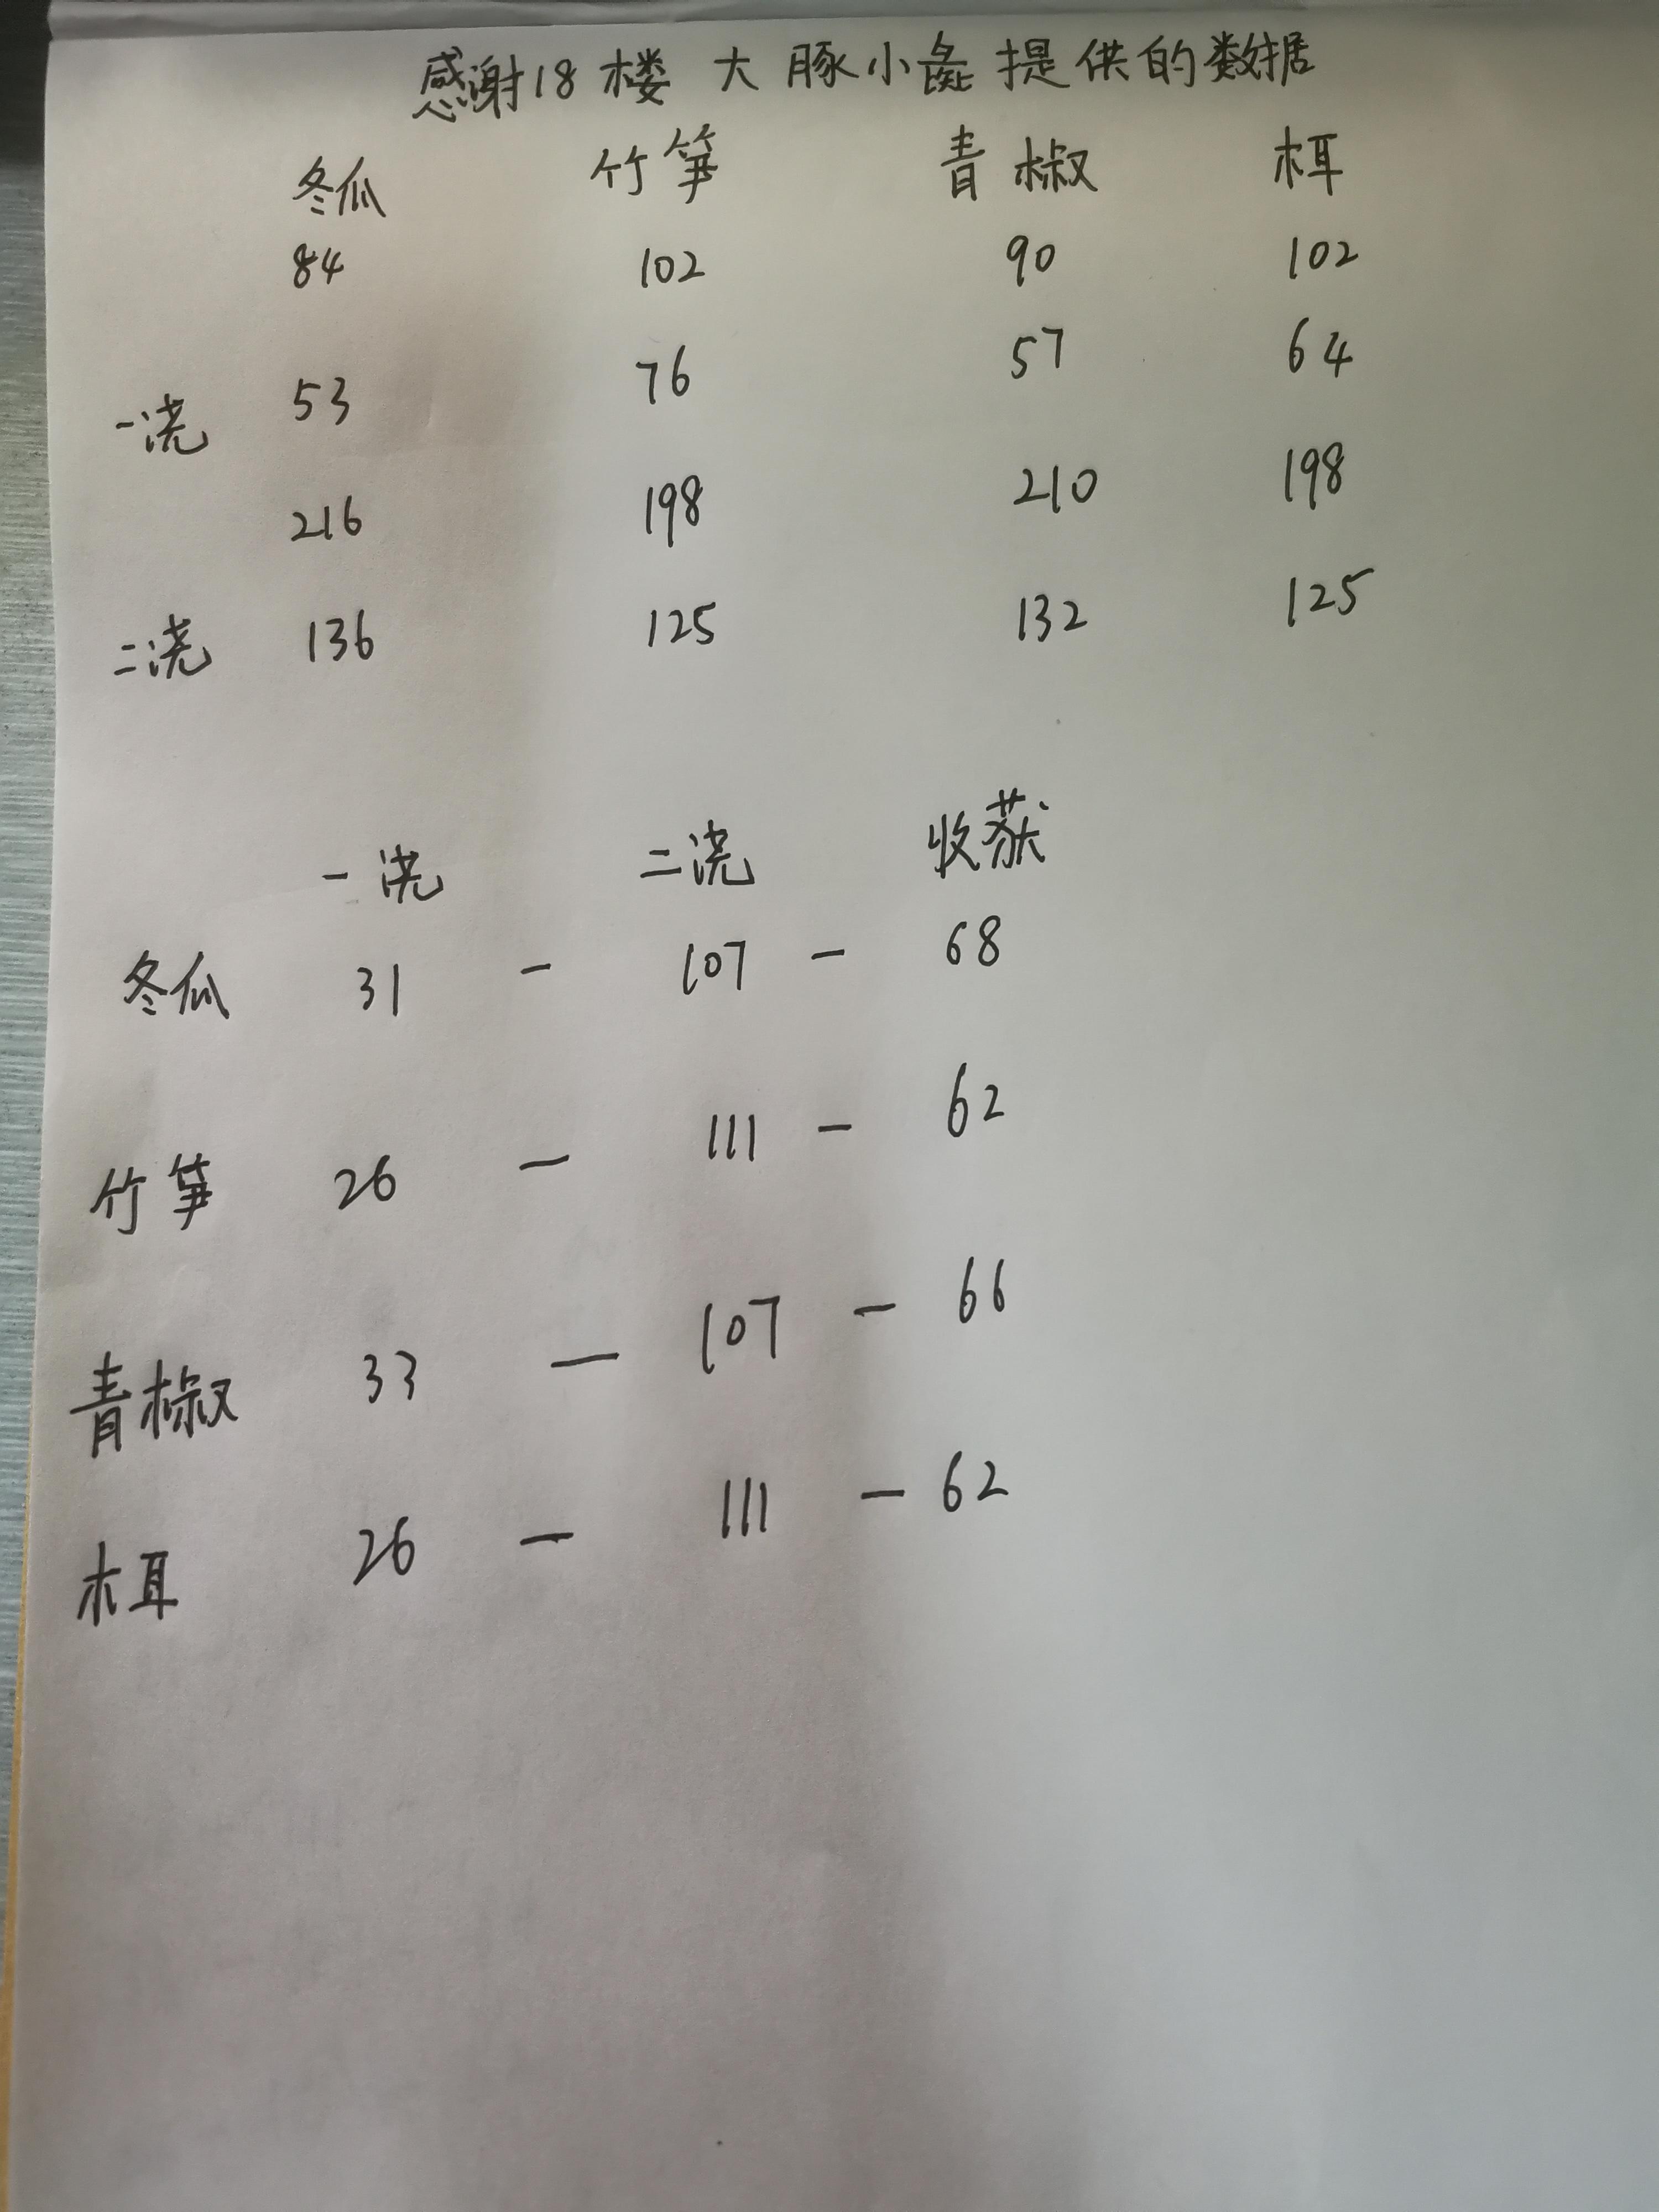 感谢18楼 大豚小彘提供的数据
冬瓜 竹笋 青椒 木耳
84 102 90 102
一浇 53 76 57 64
216 198 210 198
二浇 136 125 132 125
一浇 二浇 收获
冬瓜 31 - 107 - 68
竹笋 26 - 111 - 62
青椒 33 - 107 - 66
木耳 26 - 111 - 62